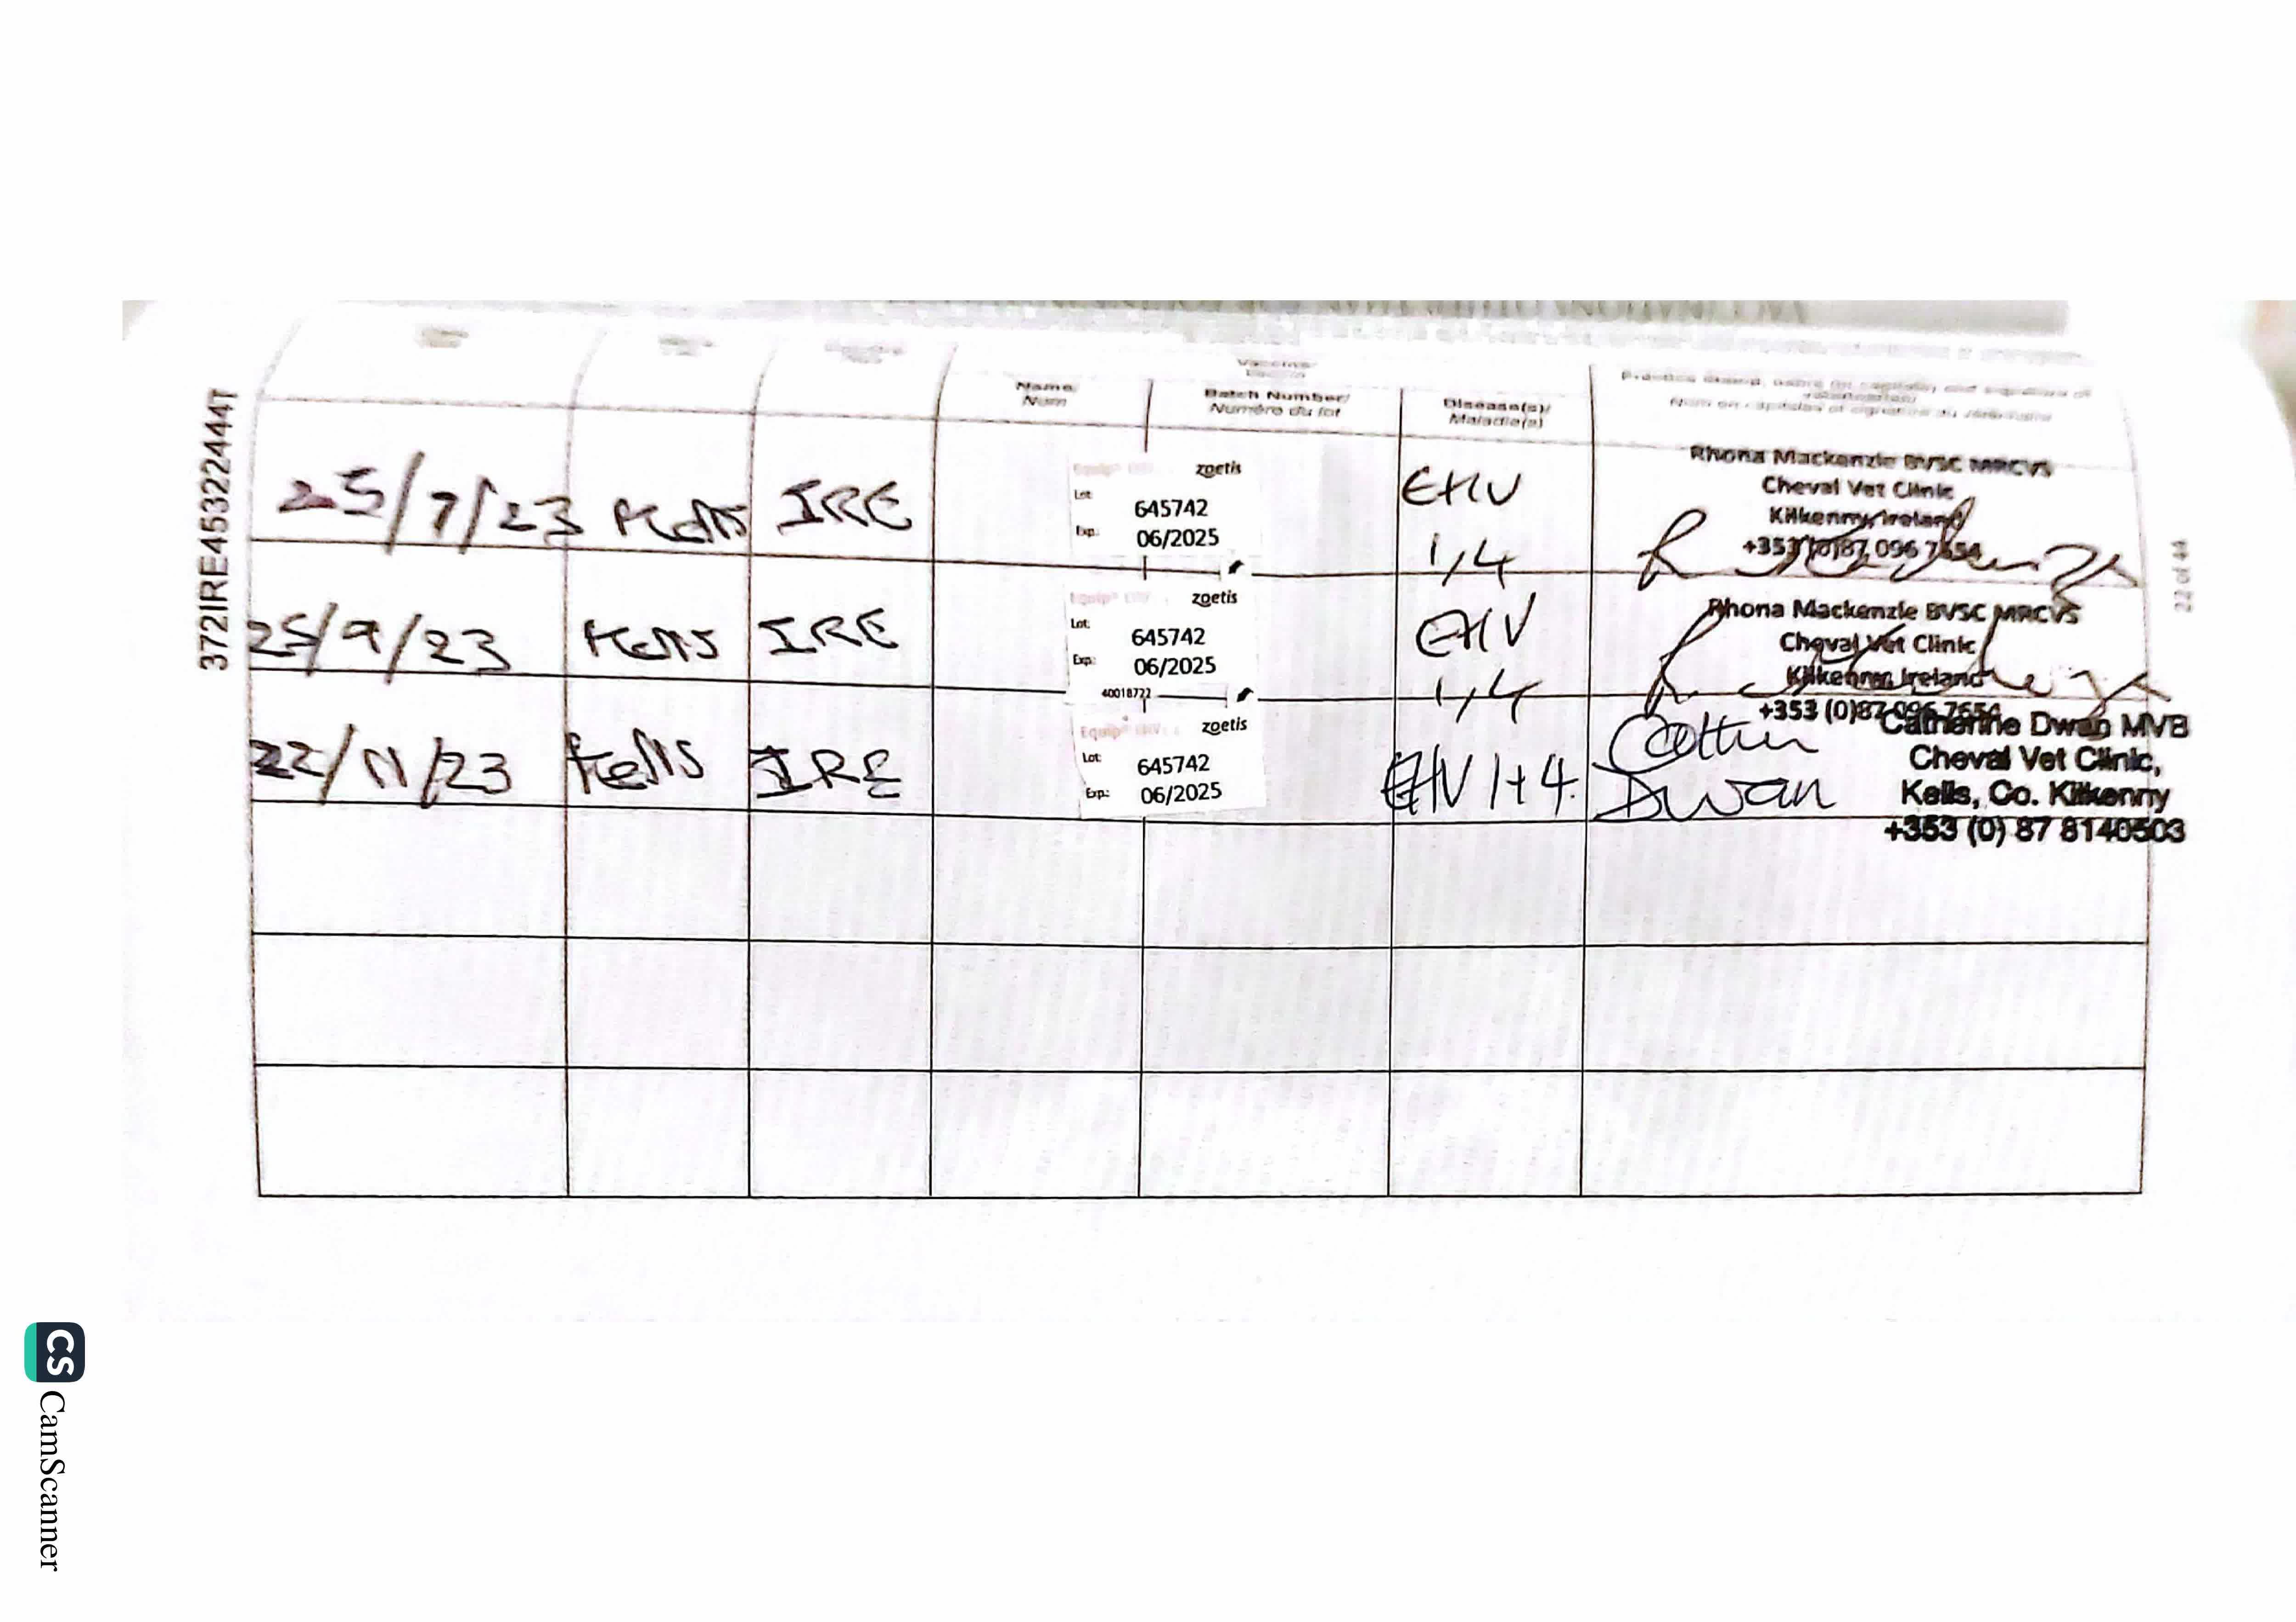 Vaccine/
Vaccin
Name/
Nom
Batch Number/
Numéro du lot
Disease(s)/
Maladie(s)
Practice stamp, name (in capitals) and signature of
Nom en capitales et signature du vétérinaire
372IRE45322444T
22 of 44
25/7/23 Kells IRE
Equip® EHV 1,4 zoetis
Lot: 645742
Exp.: 06/2025
EHV
1,4
Rhona Mackenzie BVSC MRCVS
Cheval Vet Clinic
Kilkenny, Ireland
+353 (0)87 096 7654
25/9/23 Kells IRE
Equip® EHV 1,4 zoetis
Lot: 645742
Exp.: 06/2025
40018722
EHV
1,4
Rhona Mackenzie BVSC MRCVS
Cheval Vet Clinic
Kilkenny, Ireland
+353 (0)87 096 7654
22/11/23 Kells IRE
Equip® EHV 1,4 zoetis
Lot: 645742
Exp.: 06/2025
EHV 1+4.
Dwan
Catherine Dwan MVB
Cheval Vet Clinic,
Kells, Co. Kilkenny
+353 (0) 87 8140503
CS CamScanner